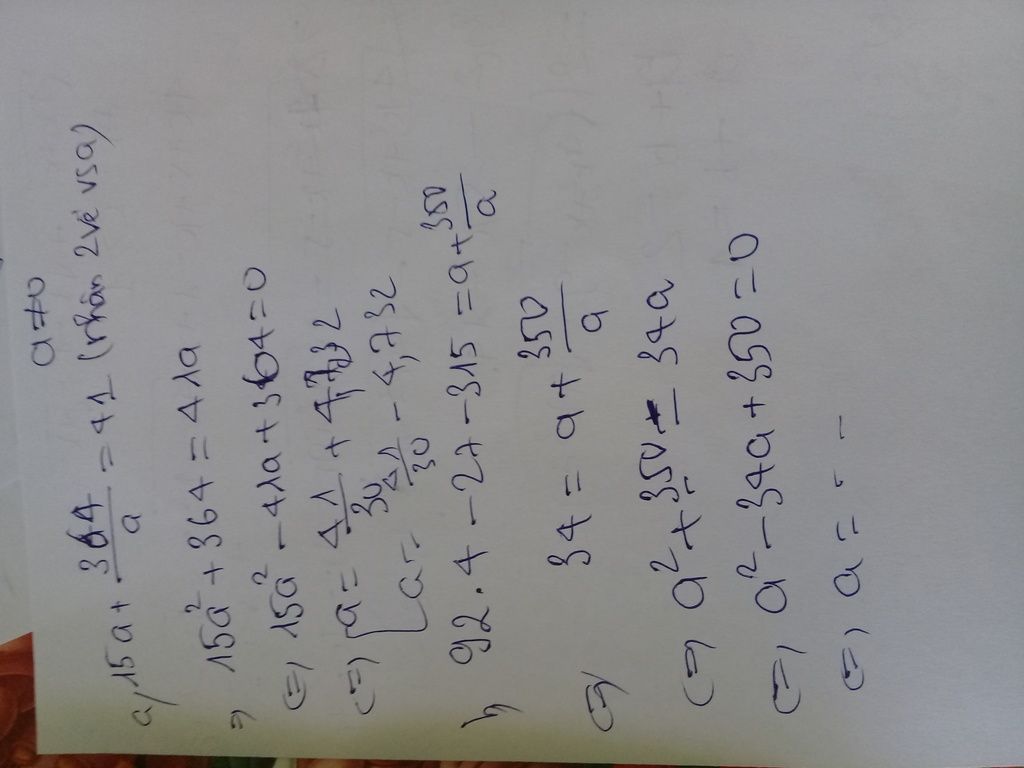 a≠0
a, 15a + 364/a = 41 (nhân 2 vế vs a)
⇒ 15a² + 364 = 41a
⇔ 15a² - 41a + 364 = 0
⇔ [a = 41/30 + 4,732
a = 41/30 - 4,732
b, 92.4 - 27 - 315 = a + 350/a
⇔ 34 = a + 350/a
⇔ a² + 350 = 34a
⇔ a² - 34a + 350 = 0
⇔ a = - -